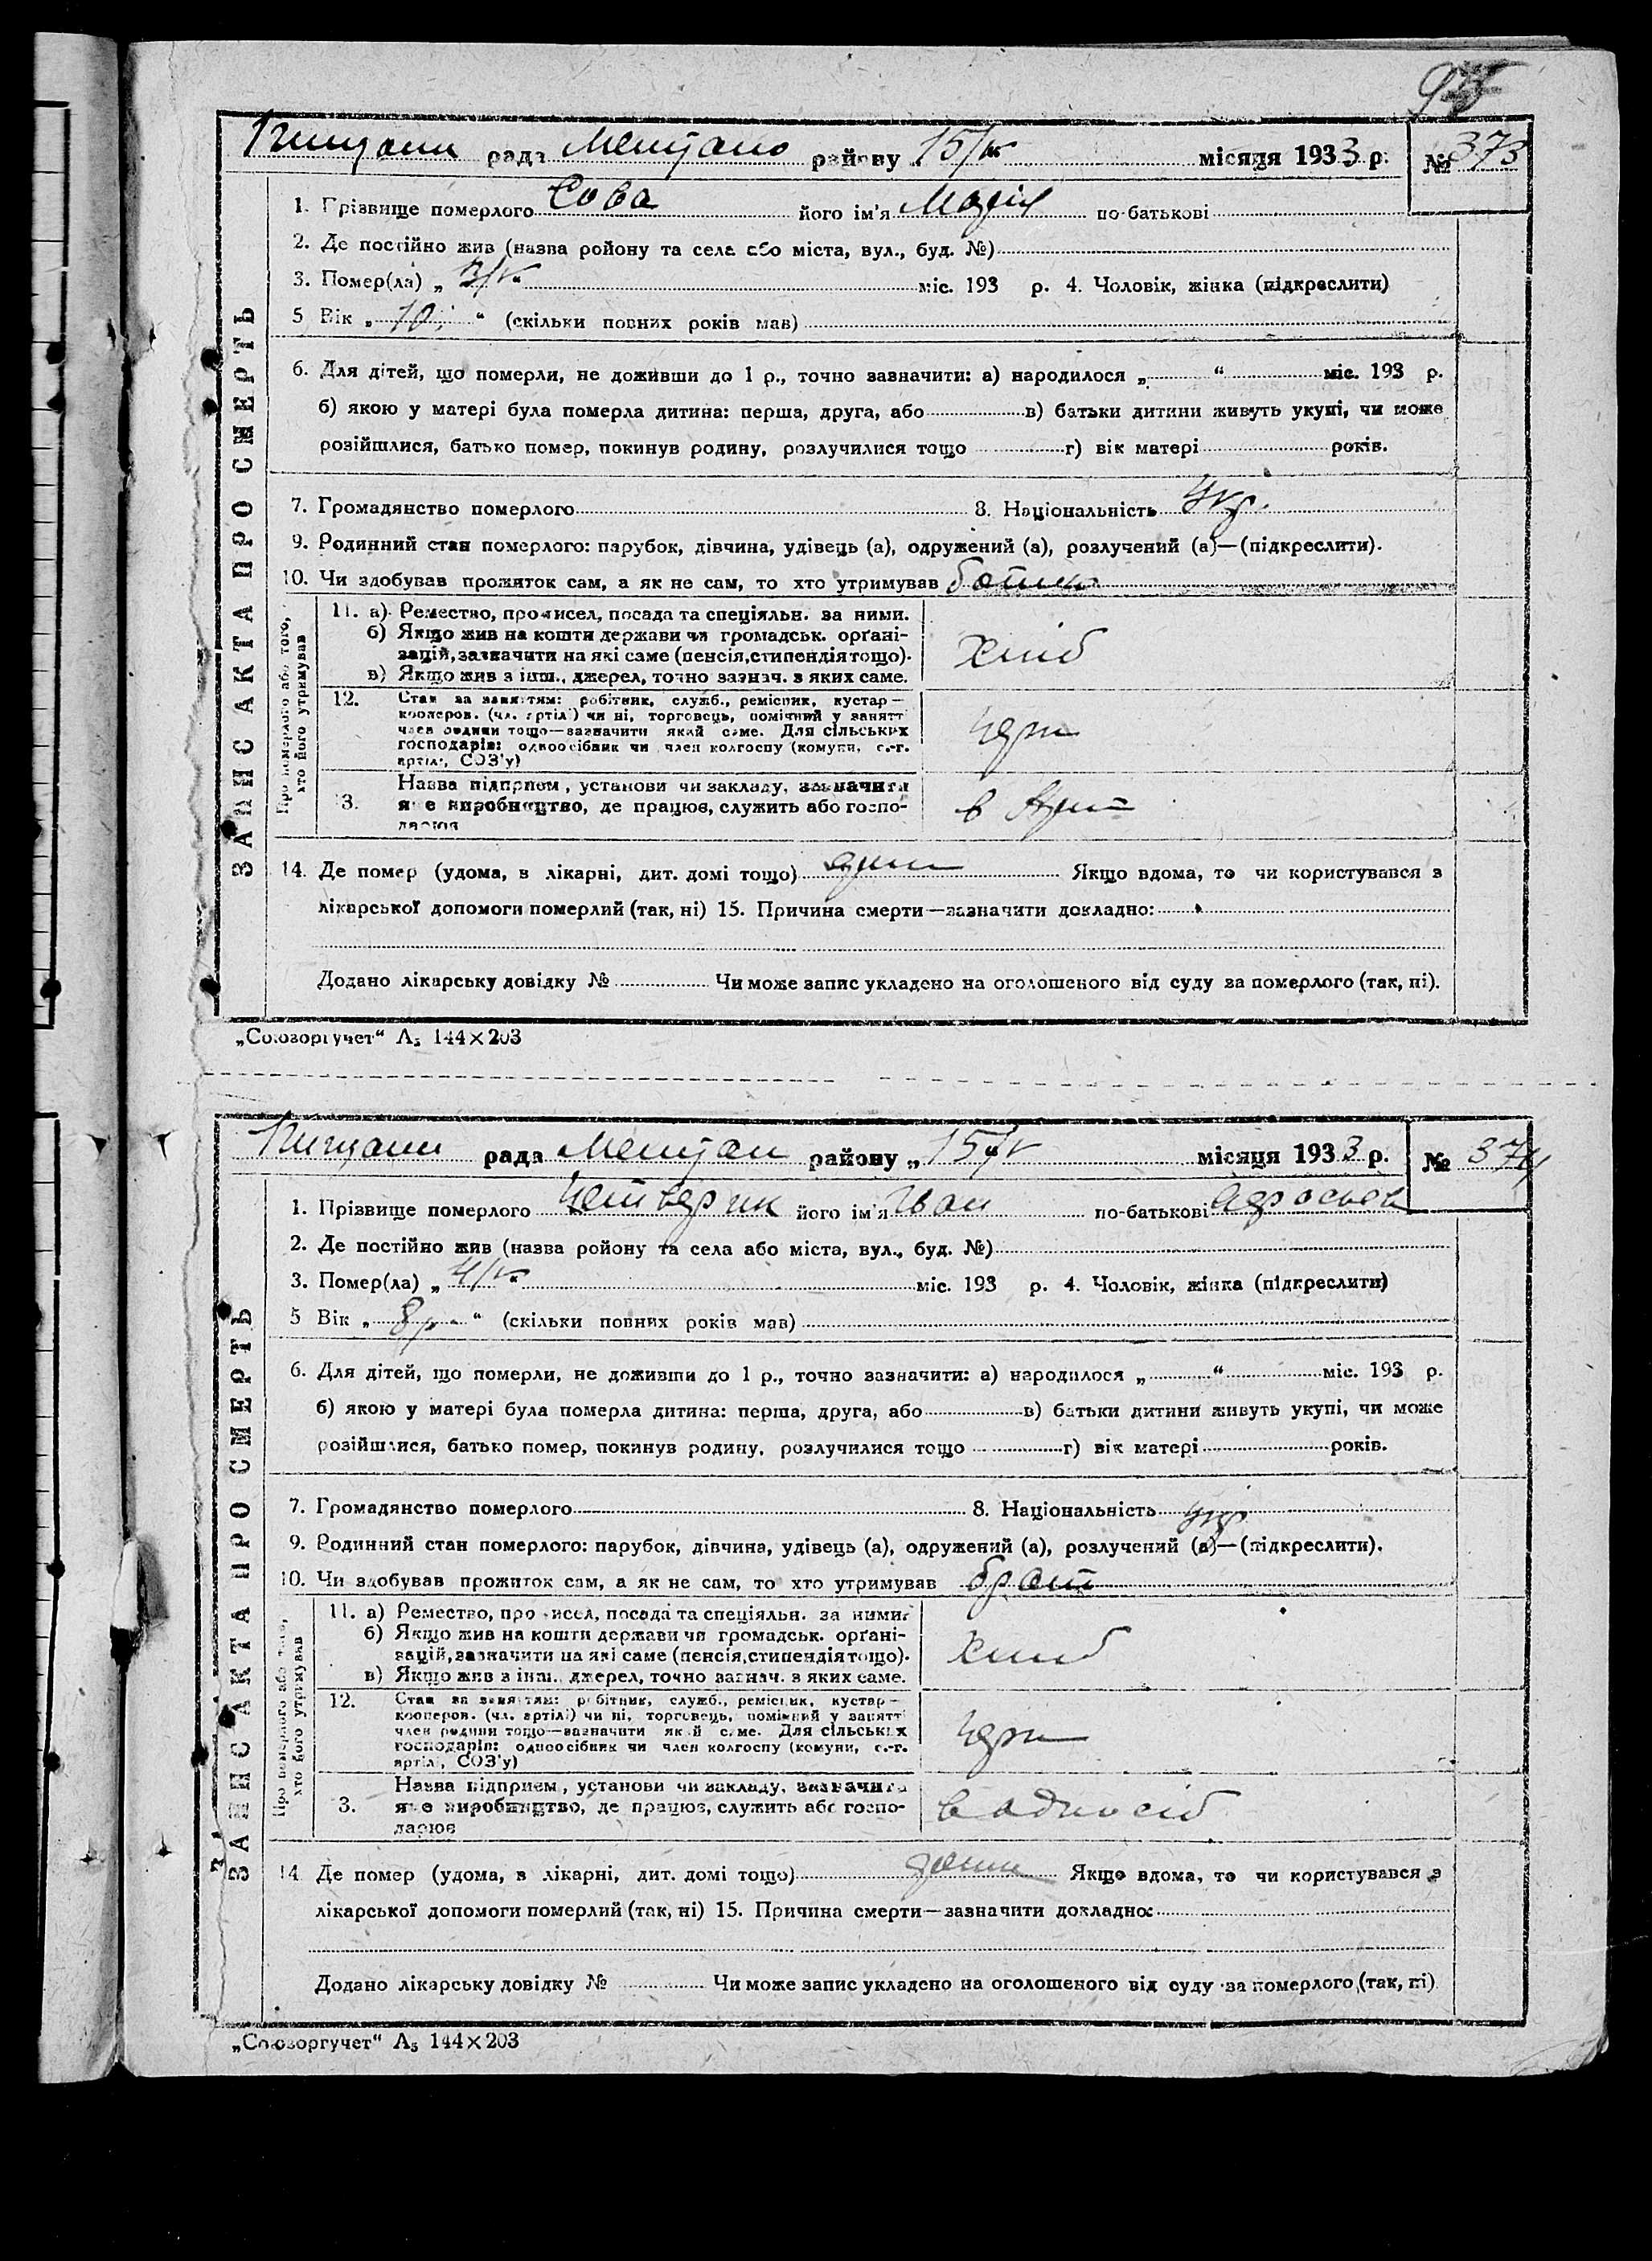 рада району 15/V місяця 1933 р. № 373
1. Прізвище померлого Сова його ім'я Марія по-батькові
2. Де постійно жив (назва ройону та села або міста, вул., буд. №)
3. Помер(ла) „ 3/V “ міс. 193 р. 4. Чоловік, жінка (підкреслити)
5 Вік „ 10 “ (скільки повних років мав)
6. Для дітей, що померли, не доживши до 1 р., точно зазначити: а) народилося „ “ міс. 193 р.
б) якою у матері була померла дитина: перша, друга, або в) батьки дитини живуть укупі, чи може
розійшлися, батько помер, покинув родину, розлучилися тощо г) вік матері років.
7. Громадянство померлого 8. Національність Укр.
9. Родинний стан померлого: парубок, дівчина, удівець (а), одружений (а), розлучений (а)—(підкреслити).
10. Чи здобував прожиток сам, а як не сам, то хто утримував батько
ЗАПИС АКТА ПРО СМЕРТЬ
Про померлого або того,
хто його утримував
11. а) Ремество, промисел, посада та спеціяльн. за ними.
б) Якщо жив на кошти держави чи громадськ. орґані-
зацій, зазначити на які саме (пенсія, стипендія тощо).
в) Якщо жив з інш., джерел, точно зазнач. з яких саме.
хліб
12. Стан за заняттям: робітник, служб., ремісник, кустар—
кооперов. (чл. артілі) чи ні, торговець, помічний у занятті
член родини тощо—зазначити який саме. Для сільських
господарів: одноосібник чи член колгоспу (комуни, с.-г.
артілі, СОЗ'у)
13. Назва підприєм., установи чи закладу, зазначити
яке виробництво, де працює, служить або госпо-
дарює
14. Де помер (удома, в лікарні, дит. домі тощо) Якщо вдома, то чи користувався з
лікарської допомоги померлий (так, ні) 15. Причина смерти—зазначити докладно:
Додано лікарську довідку № Чи може запис укладено на оголошеного від суду за померлого (так, ні).
„Союзоргучет“ А₅ 144×203
рада району „ 15/V місяця 1933 р. № 374
1. Прізвище померлого Четверик його ім'я Іван по-батькові
2. Де постійно жив (назва ройону та села або міста, вул., буд. №)
3. Помер(ла) „ 4/V “ міс. 193 р. 4. Чоловік, жінка (підкреслити)
5 Вік „ 8 р “ (скільки повних років мав)
6. Для дітей, що померли, не доживши до 1 р., точно зазначити: а) народилося „ “ міс. 193 р.
б) якою у матері була померла дитина: перша, друга, або в) батьки дитини живуть укупі, чи може
розійшлися, батько помер, покинув родину, розлучилися тощо г) вік матері років.
7. Громадянство померлого 8. Національність Укр
9. Родинний стан померлого: парубок, дівчина, удівець (а), одружений (а), розлучений (а)—(підкреслити).
10. Чи здобував прожиток сам, а як не сам, то хто утримував брат
ЗАПИС АКТА ПРО СМЕРТЬ
Про померлого або того,
хто його утримував
11. а) Ремество, промисел, посада та спеціяльн. за ними.
б) Якщо жив на кошти держави чи громадськ. орґані-
зацій, зазначити на які саме (пенсія, стипендія тощо).
в) Якщо жив з інш., джерел, точно зазнач. з яких саме.
хліб
12. Стан за заняттям: робітник, служб., ремісник, кустар—
кооперов. (чл. артілі) чи ні, торговець, помічний у занятті
член родини тощо—зазначити який саме. Для сільських
господарів: одноосібник чи член колгоспу (комуни, с.-г.
артілі, СОЗ'у)
13. Назва підприєм., установи чи закладу, зазначити
яке виробництво, де працює, служить або госпо-
дарює
в одноосіб
14 Де помер (удома, в лікарні, дит. домі тощо) Якщо вдома, то чи користувався з
лікарської допомоги померлий (так, ні) 15. Причина смерти—зазначити докладно:
Додано лікарську довідку № Чи може запис укладено на оголошеного від суду за померлого (так, ні)
„Союзоргучет“ А₅ 144×203